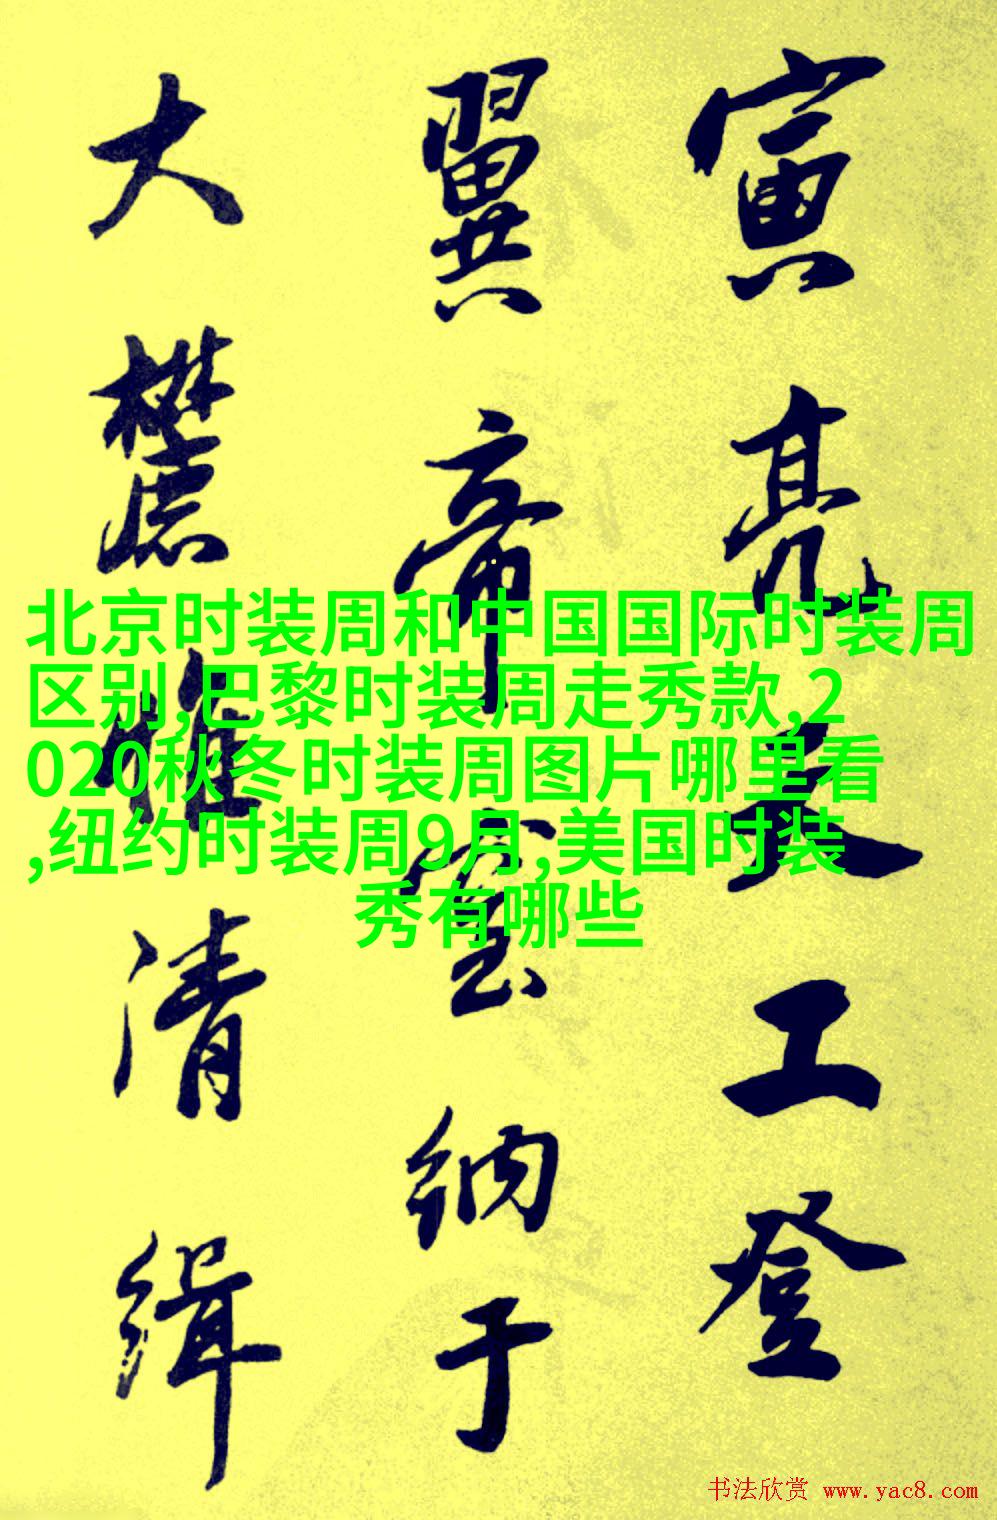 寅亮天工登
翼帝室納于
大麓惟清緝
北京时装周和中国国际时装周
区别,巴黎时装周走秀款,2
020秋冬时装周图片哪里看
,纽约时装周9月,美国时装
秀有哪些
书法欣赏 www.yac8.com